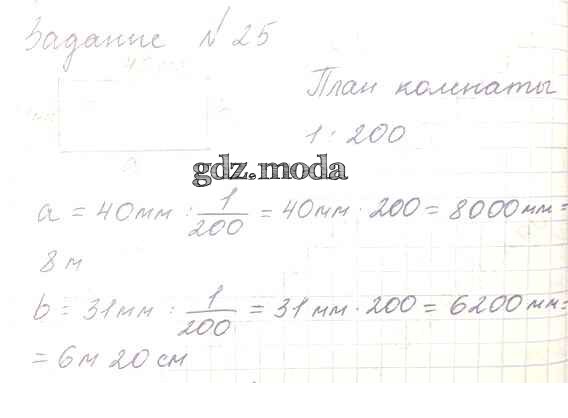 Задание № 25
План комнаты
1:200
a
gdz.moda
a = 40мм : 1/200 = 40мм · 200 = 8000мм =
8 м
b = 31мм : 1/200 = 31 мм · 200 = 6200 мм =
= 6м 20 см